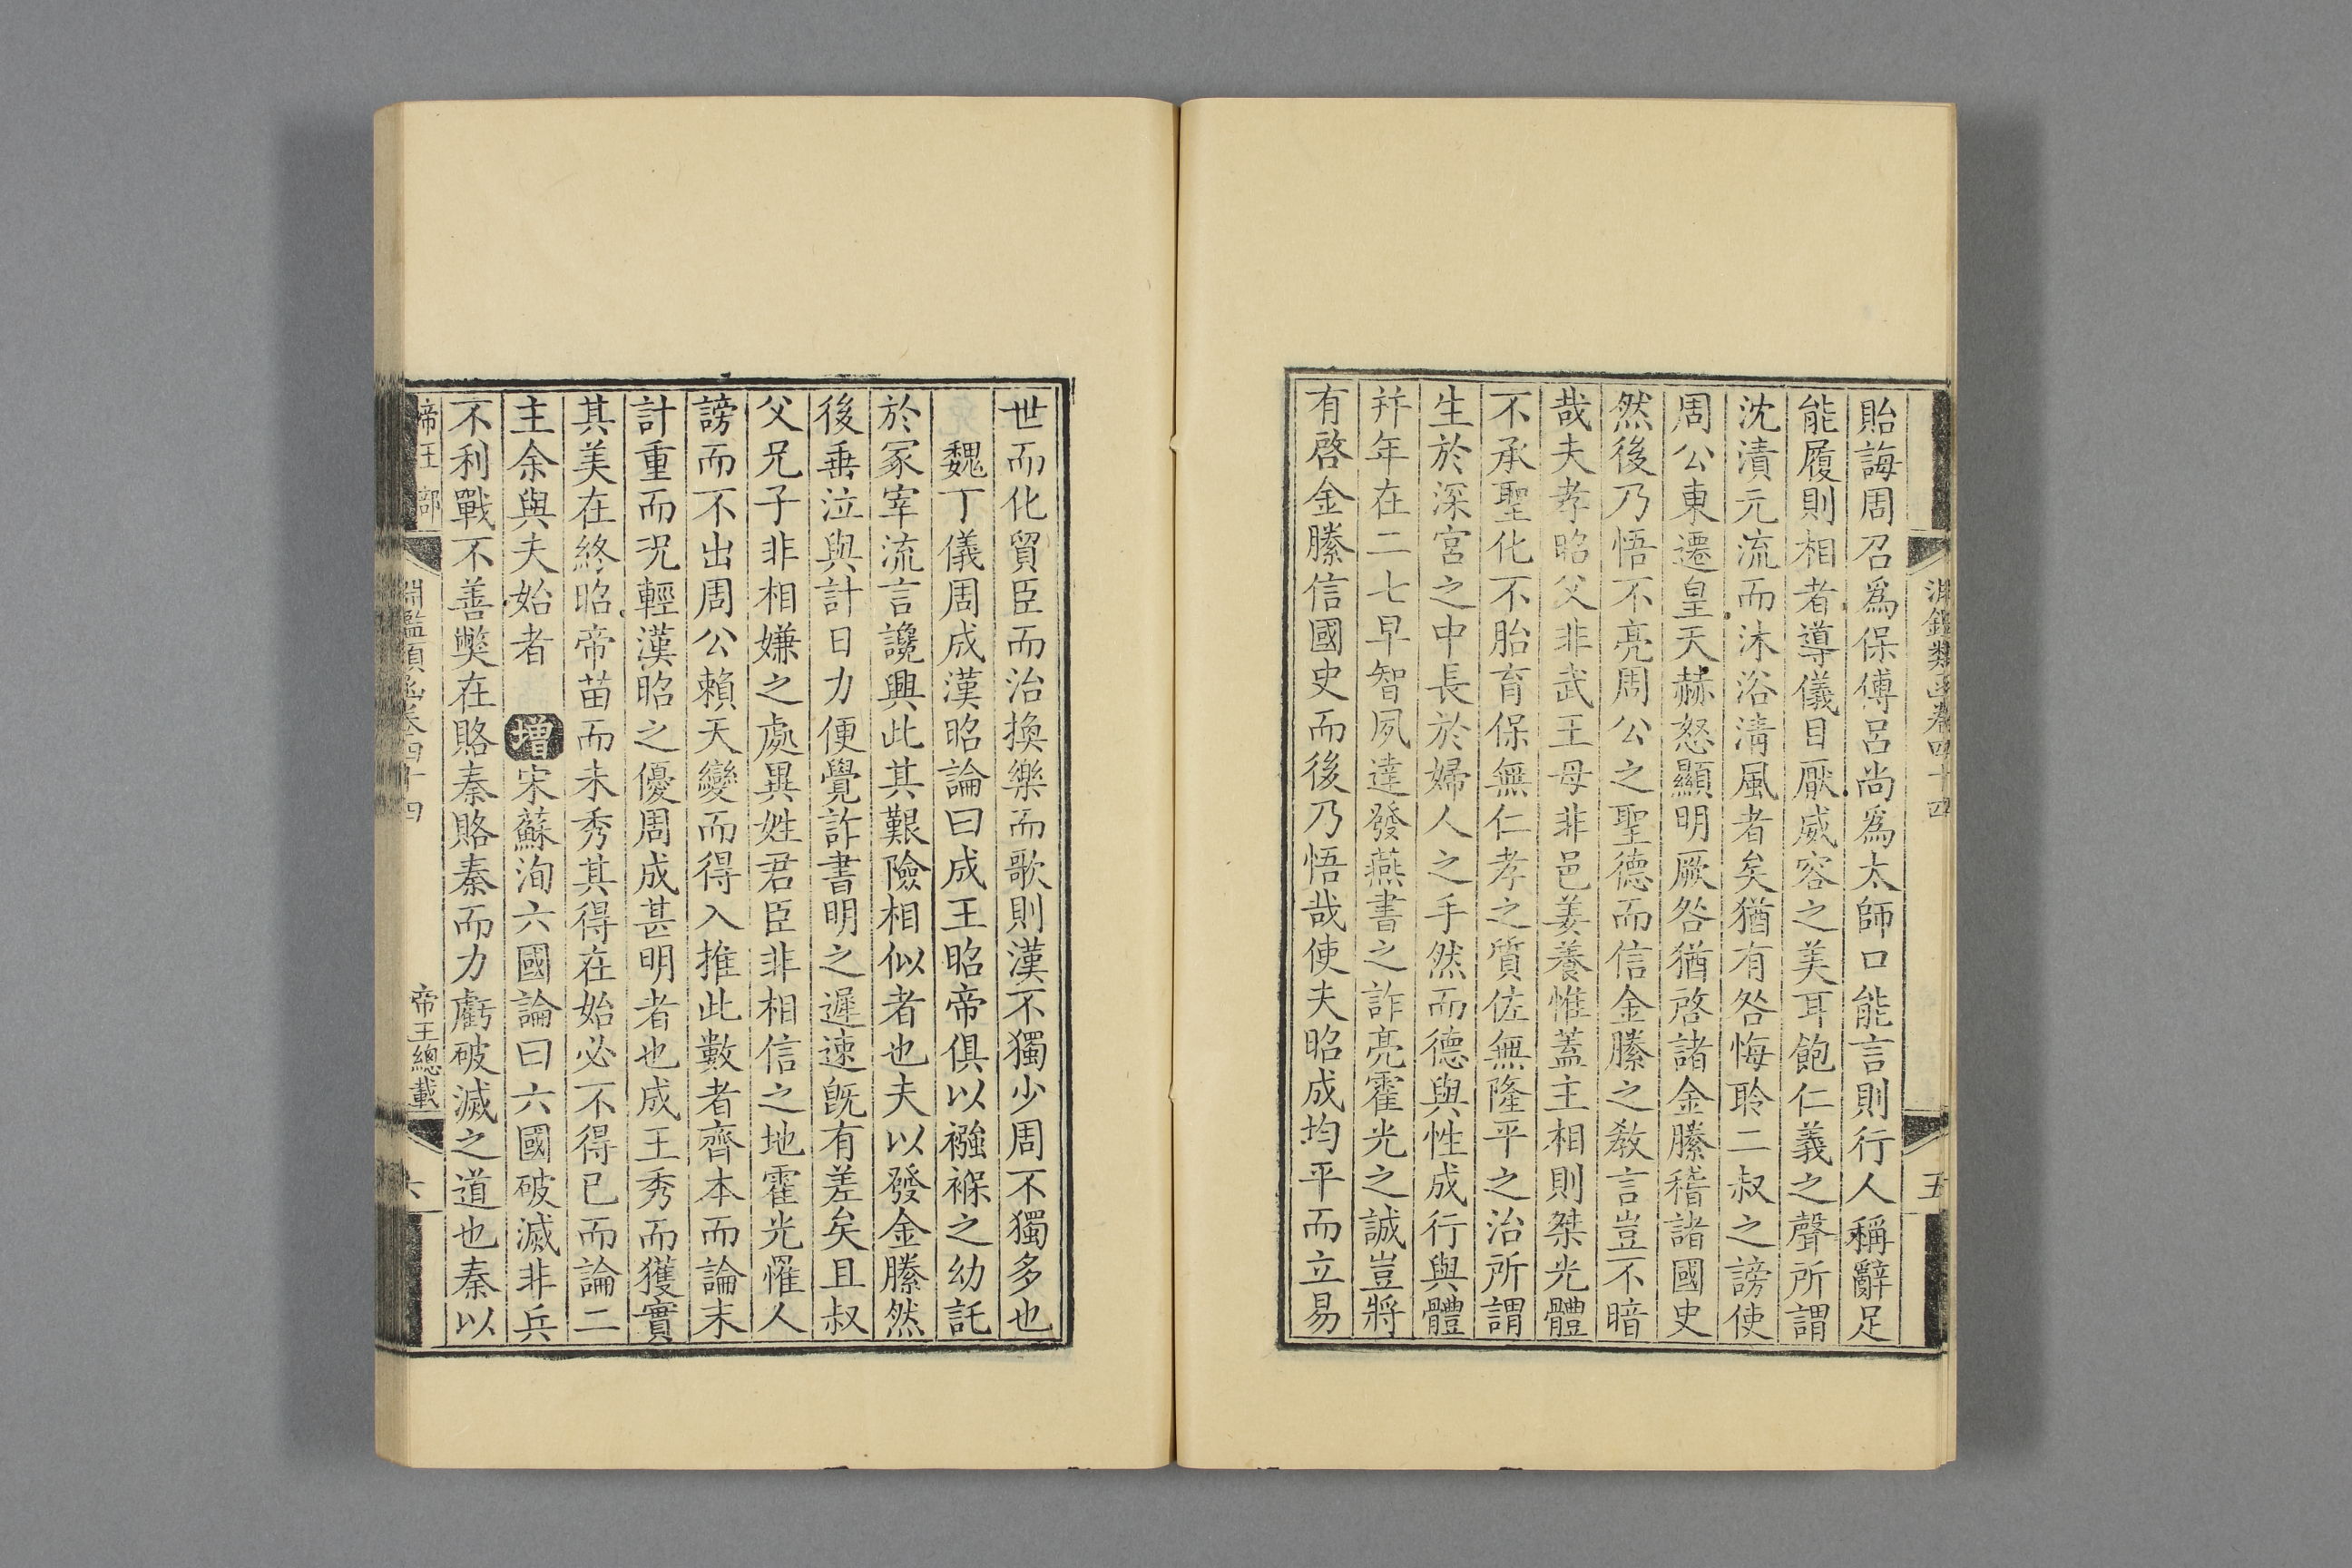 淵鑑類函卷四十四
五
貽誨周召爲保傅呂尚爲太師口能言則行人稱辭足
能履則相者導儀目厭威容之美耳飽仁義之聲所謂
沈漬元流而沐浴清風者矣猶有咎悔聆二叔之謗使
周公東遷皇天赫怒顯明厥咎猶啓諸金縢稽諸國史
然後乃悟不亮周公之聖德而信金縢之教言豈不暗
哉夫孝昭父非武王母非邑姜養惟蓋主相則桀光體
不承聖化不胎育保無仁孝之質佐無隆平之治所謂
生於深宮之中長於婦人之手然而德與性成行與體
幷年在二七早智夙達發燕書之詐亮霍光之誠豈將
有啓金縢信國史而後乃悟哉使夫昭成均平而立易
世而化貿臣而治換樂而歌則漢不獨少周不獨多也
魏丁儀周成漢昭論曰成王昭帝俱以襁褓之幼託
於冢宰流言讒興此其艱險相似者也夫以發金縢然
後垂泣與計日力便覺詐書明之遲速旣有差矣且叔
父兄子非相嫌之處異姓君臣非相信之地霍光罹人
謗而不出周公賴天變而得入推此數者齊本而論末
計重而況輕漢昭之優周成甚明者也成王秀而獲實
其美在終昭帝苗而未秀其得在始必不得已而論二
主余與夫始者 增宋蘇洵六國論曰六國破滅非兵
不利戰不善獘在賂秦賂秦而力虧破滅之道也秦以
帝王部
淵鑑類函卷四十四
帝王總載
六